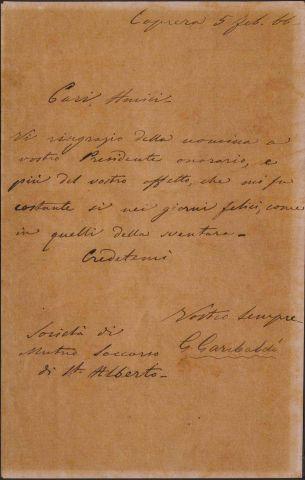 Caprera 5 feb. 66
Cari Amici.
Vi ringrazio della nomina a
vostro Presidente onorario, e
più del vostro affetto, che mi fu
costante sì nei giorni felici, come
in quelli della sventura.
Credetemi
Vostro sempre
G. Garibaldi
Società di
Mutuo Soccorso
di St Alberto.